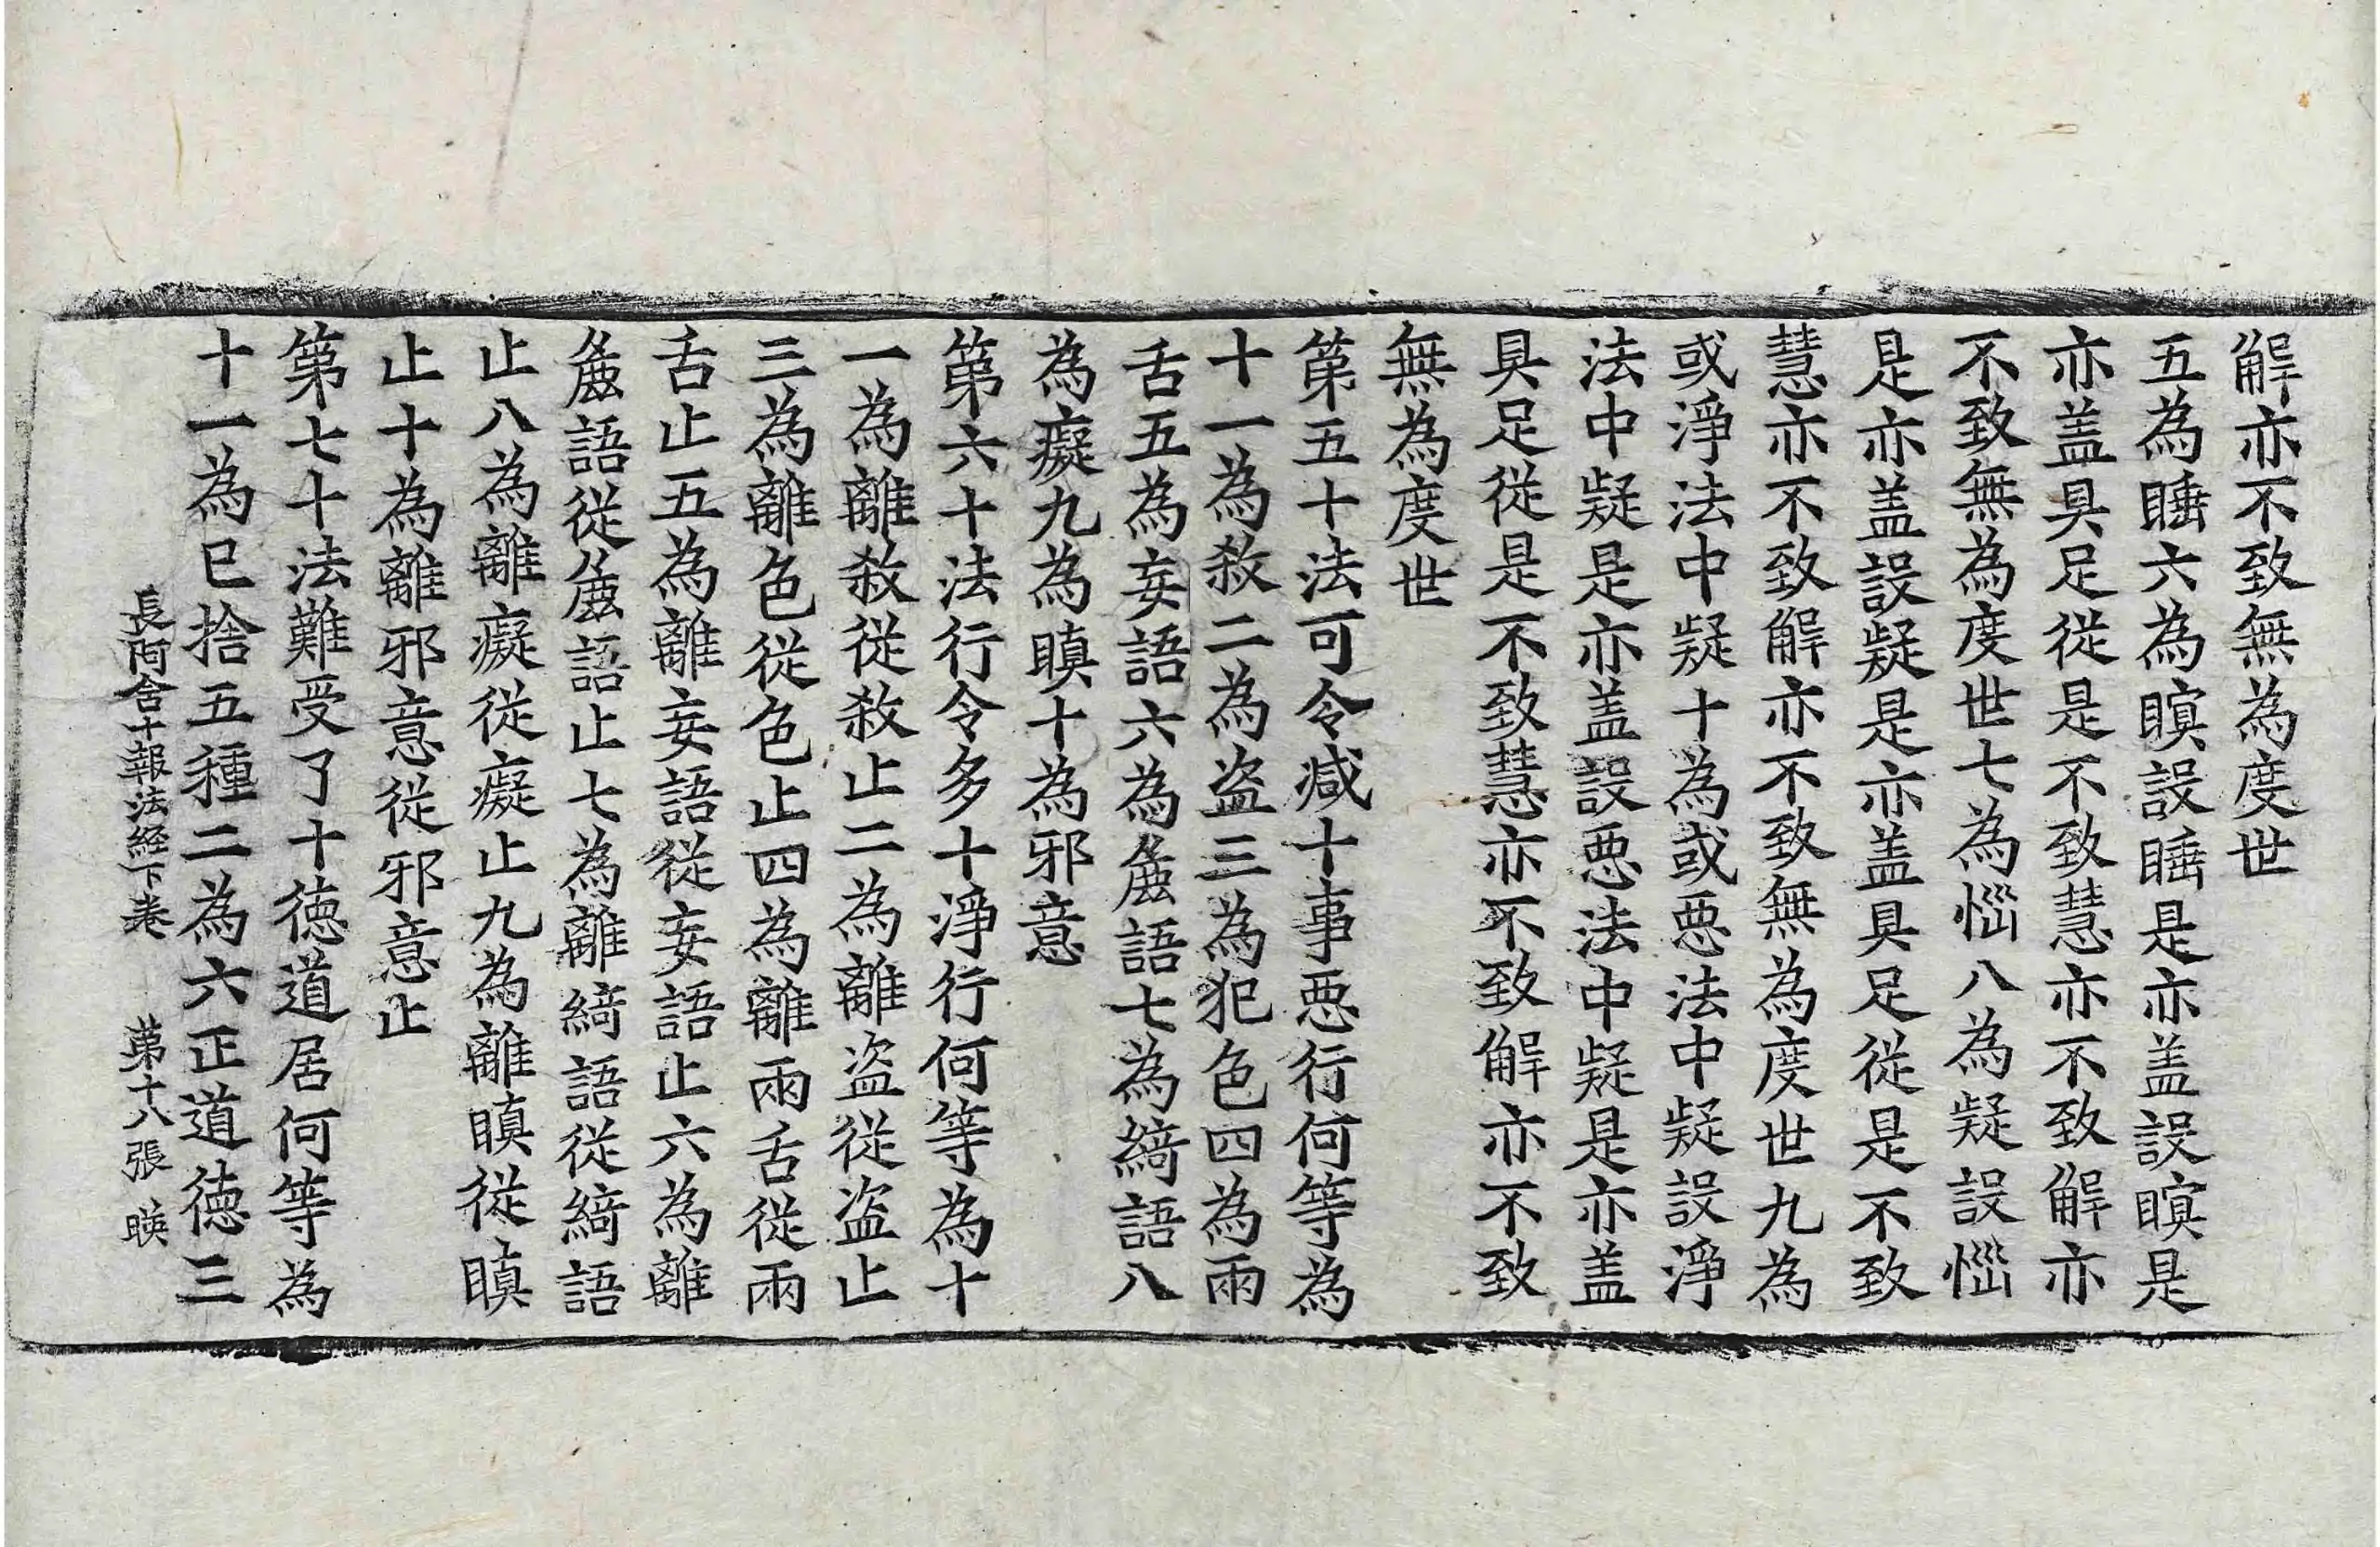 解亦不致無為度世
五為睡六為瞑設睡是亦盖設瞑是
亦盖具足從是不致慧亦不致解亦
不致無為度世七為惱八為疑設惱
是亦盖設疑是亦盖具足從是不致
慧亦不致解亦不致無為度世九為
或淨法中疑十為或惡法中疑設淨
法中疑是亦盖設惡法中疑是亦盖
具足從是不致慧亦不致解亦不致
無為度世
第五十法可令减十事惡行何等為
十一為殺二為盗三為犯色四為兩
舌五為妄語六為麁語七為綺語八
為癡九為瞋十為邪意
第六十法行令多十淨行何等為十
一為離殺從殺止二為離盗從盗止
三為離色從色止四為離兩舌從兩
舌止五為離妄語從妄語止六為離
麁語從麁語止七為離綺語從綺語
止八為離癡從癡止九為離瞋從瞋
止十為離邪意從邪意止
第七十法難受了十德道居何等為
十一為已捨五種二為六正道德三
長阿含十報法経下卷 第十八張 暎